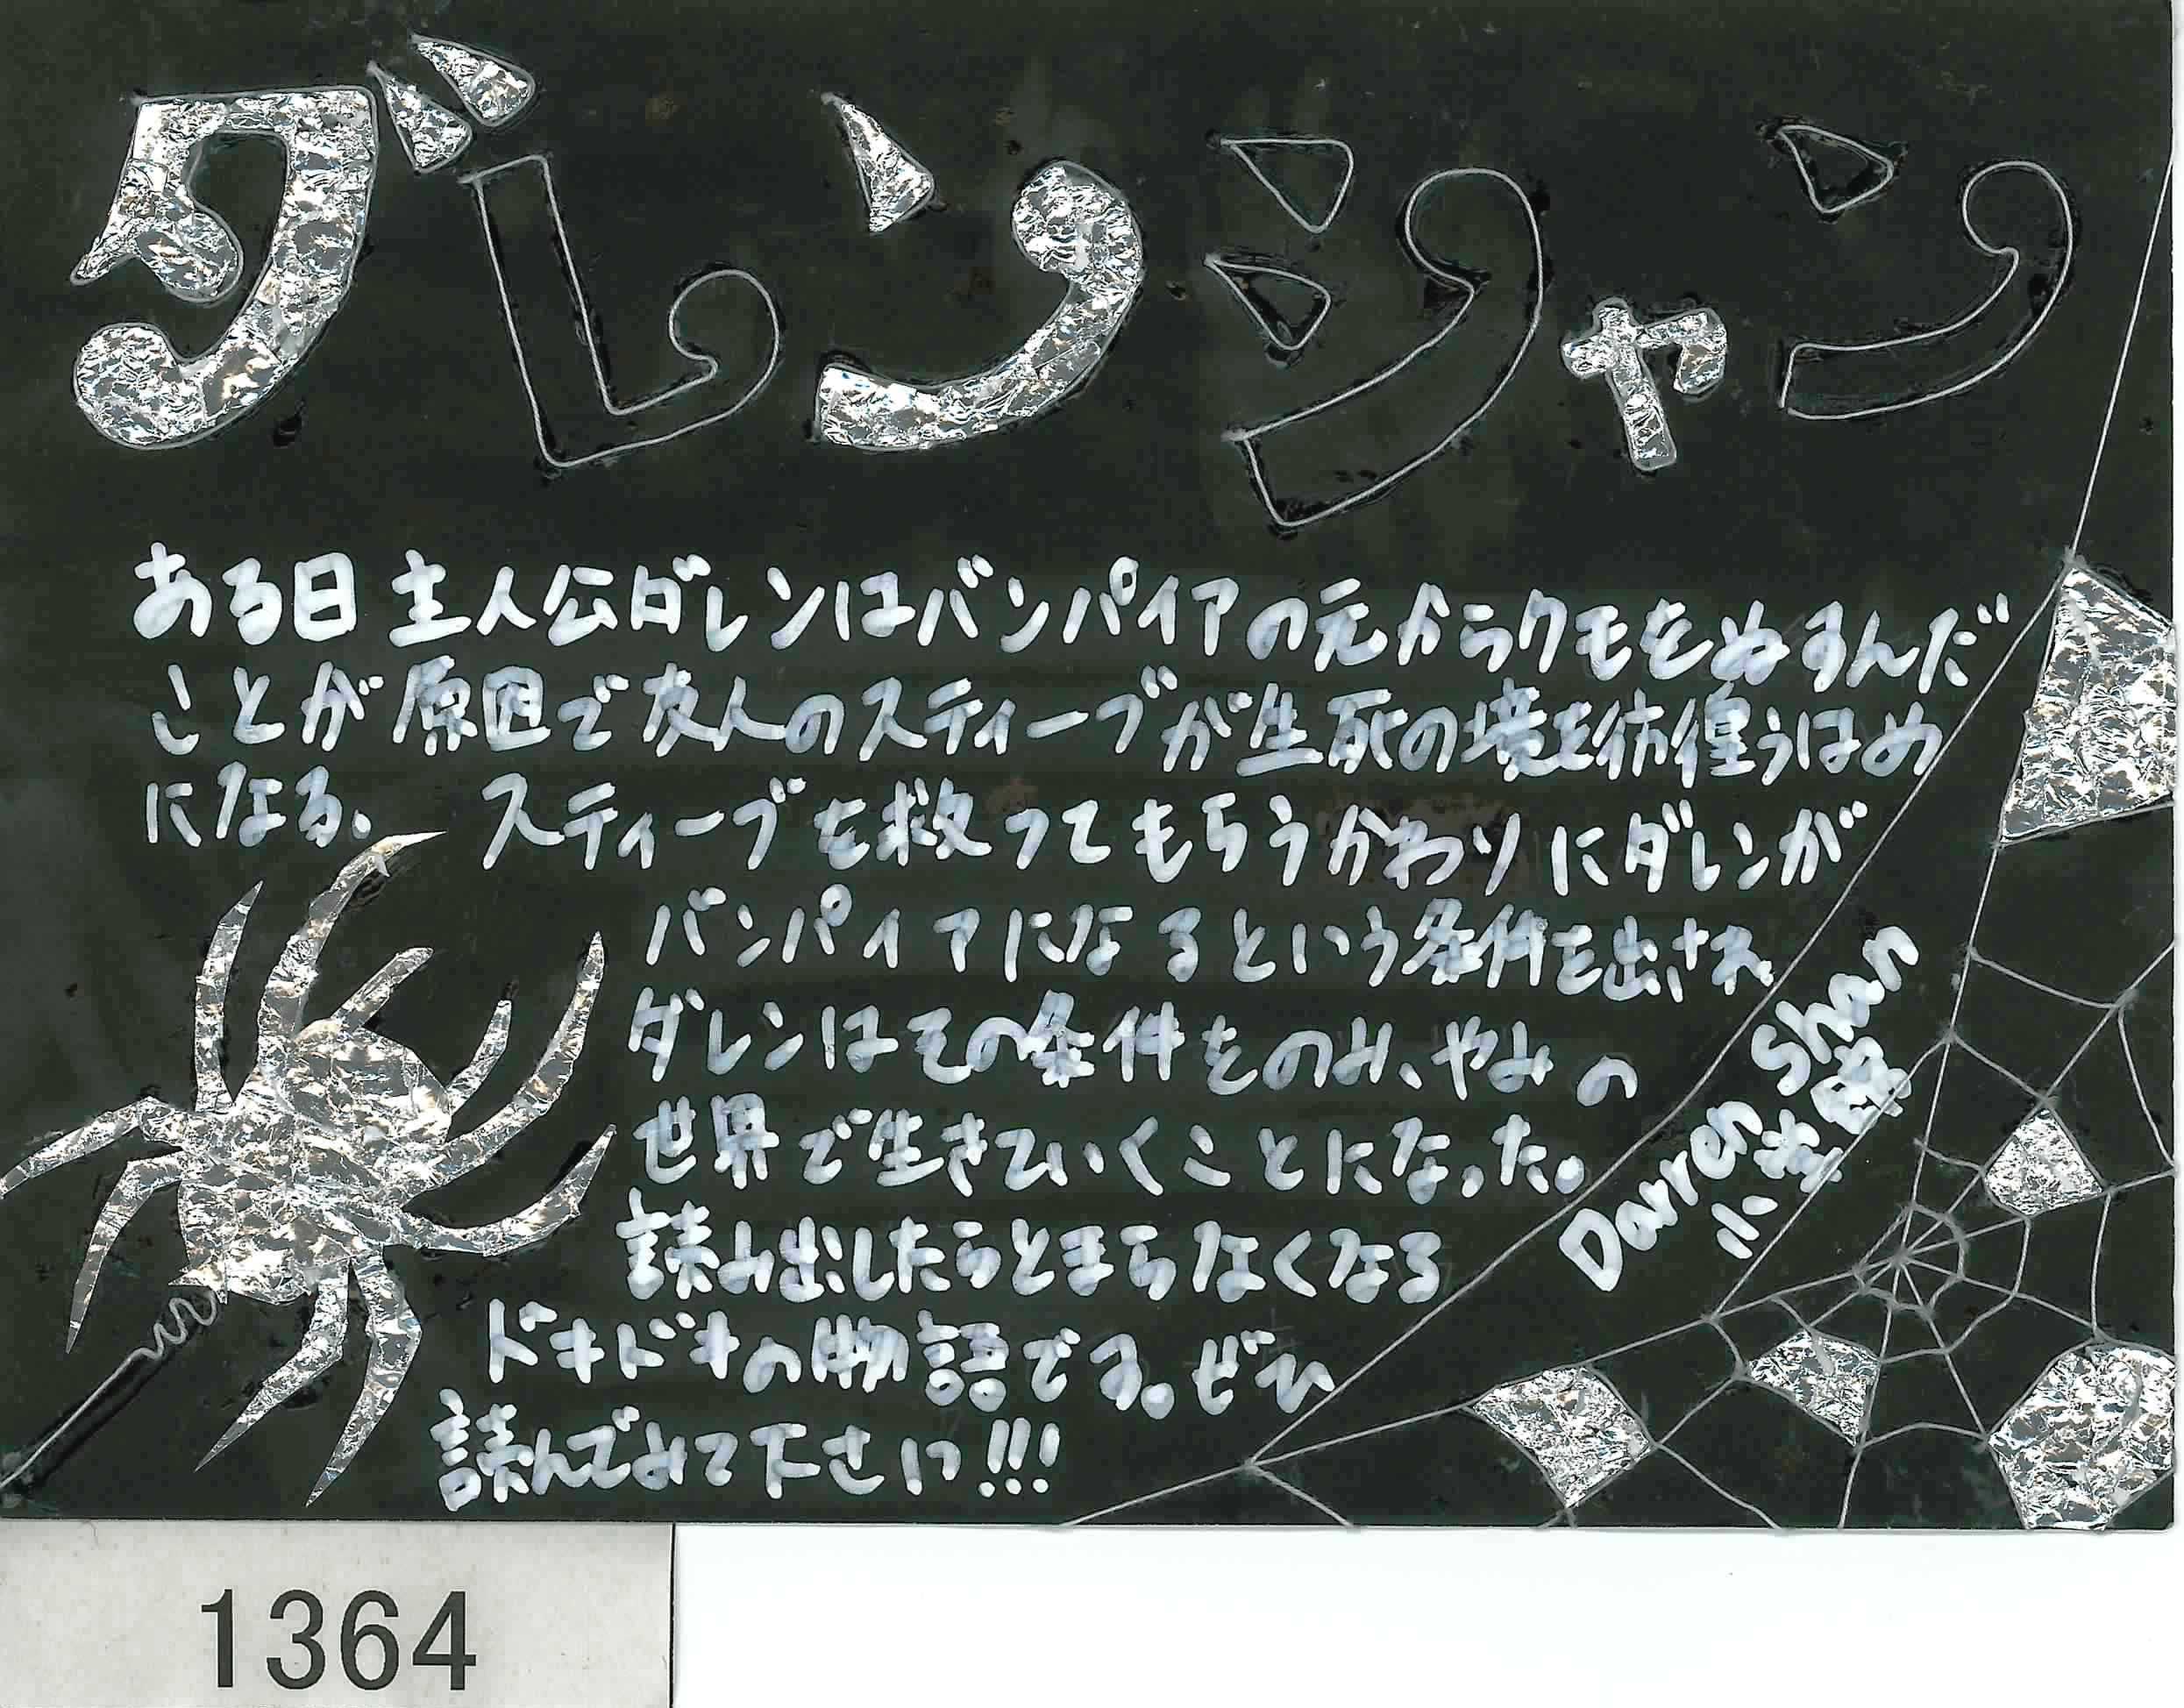 ダレンシャン
ある日 主人公ダレンはバンパイアの元からクモをぬすんだ
ことが原因で友人のスティーブが生死の境を彷徨うはめ
になる。 スティーブを救ってもらうかわりにダレンが
バンパイアになるという条件を出され
ダレンはその条件をのみ、やみの
世界で生きていくことになった。
読み出したらとまらなくなる
ドキドキの物語でる。ぜひ
読んでみて下さいっ!!!
Darren Shan
小学館
1364